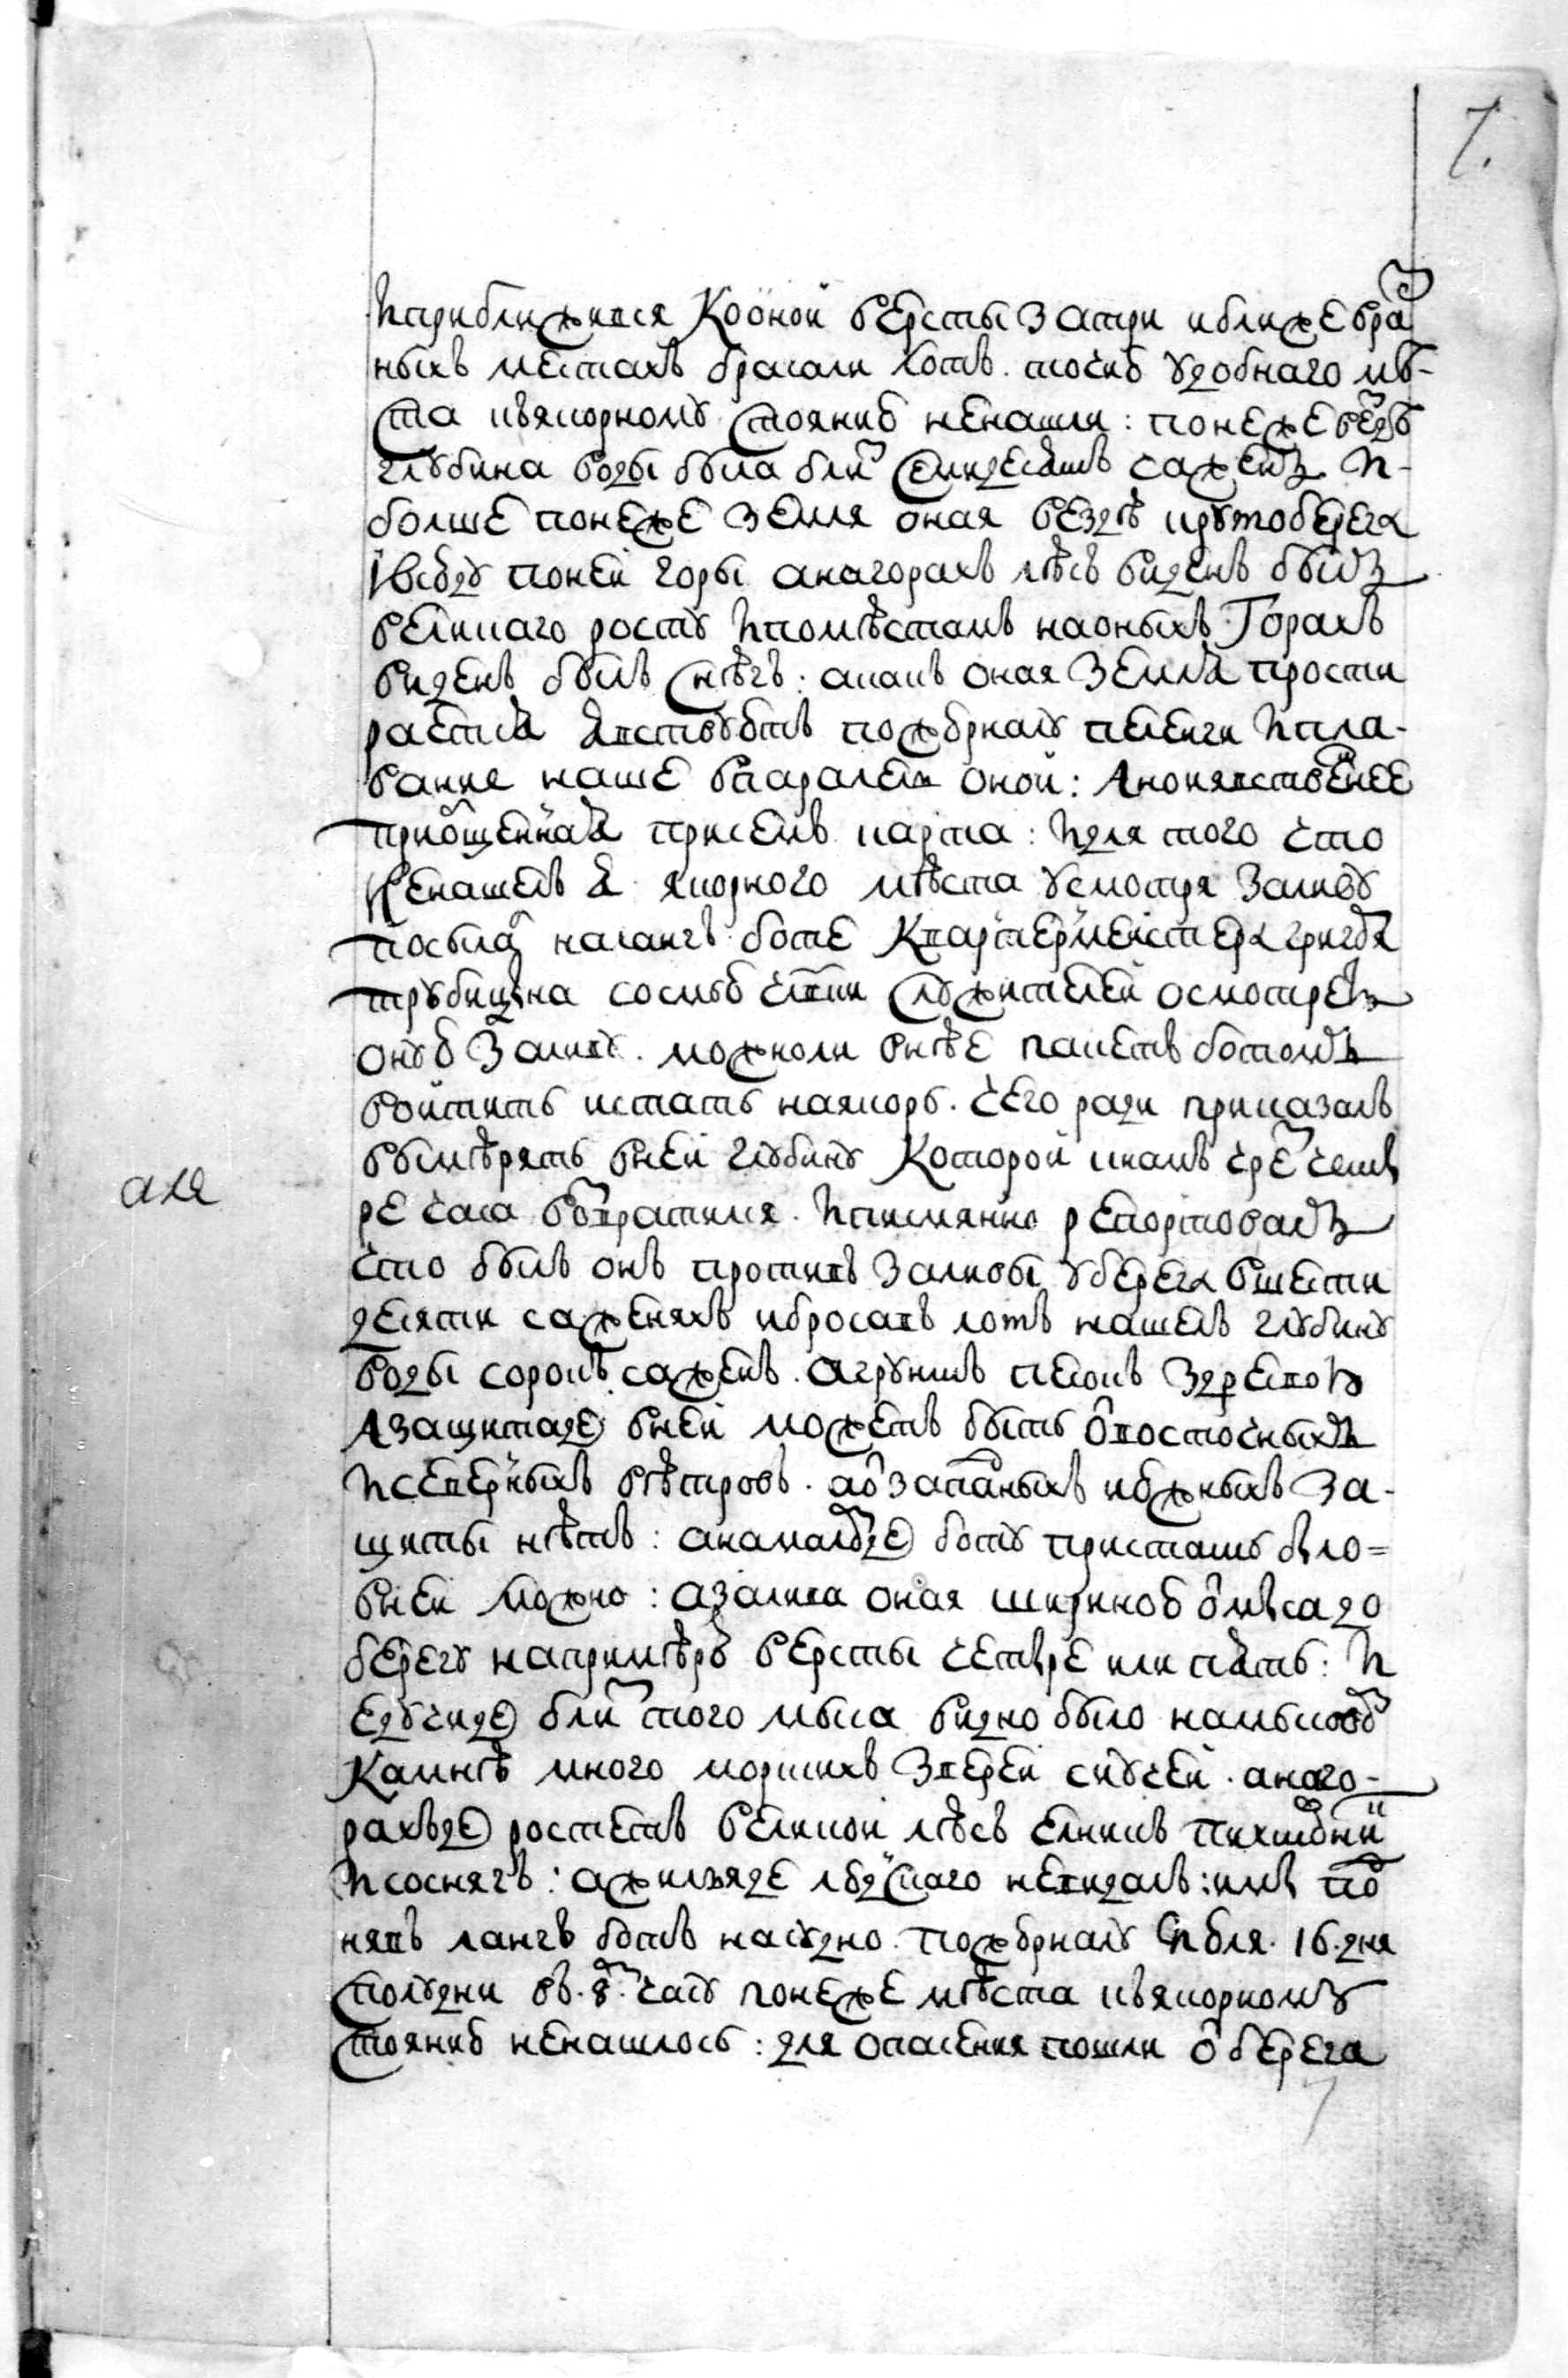 7.
И приближився к оной версты за три и ближе в раз
ныхъ местахъ бросали лотъ. токмо удобнаго мѣ-
ста къ якорному стоянию не нашли: понеже везде
глубина воды была близ семидесятъ саженъ и
болше понеже земля оная вездѣ крутоберега
и всюду по ней горы а на горахъ лѣсъ виденъ былъ
великаго росту и по мѣстамъ на оныхъ горахъ
виденъ былъ снѣгъ: а какъ оная земля прости
раетца явствуетъ по журналу пеленги и пла-
вание наше впаралель оной: а но явственнее
приобщенная присемъ карта: и для того что
не нашелъ я якорного мѣста усмотря заливу
посылал на лангъ боте квартермейстера григоря
трубицына сосмью чѣвки служителей осмотреть
оную заливу.можноли в нѣе пакетъ ботомъ
войтить и стать на якорь. чего ради приказалъ
вымѣрять в ней глубину которой к намъ чрез четы
ре часа возвратился. и писмянно репортовалъ
что былъ онъ противъ заливы у берега в шести
десяти саженяхъ и бросавъ лотъ нашелъ глубину
воды сорокъ саженъ. а грунтъ песокъ здресвой
а защита де в ней можетъ быть от восточныхъ
и северныхъ вѣтровъ. а от западныхъ и южныхъ за-
щиты нѣтъ: а на малой де боту пристать было=
в ней можно: а залива оная шириною от мыса до
берегу напримѣръ версты четыре или пять: и
едучи де близ того мыса видно было на мысовой
камнѣ много морскихъ зверей сивучей. а на го-
рахъ де ростетъ великой лѣсъ елникъ пихтовник
и соснягъ: а жилья де людскаго не видалъ: и мы под
нявъ лангъ ботъ на судно. по журналу июля. 16. дня
с полудни въ. 8. часу понеже мѣста къ якорному
стоянию не нашлось: для опасения пошли от берега
але
7